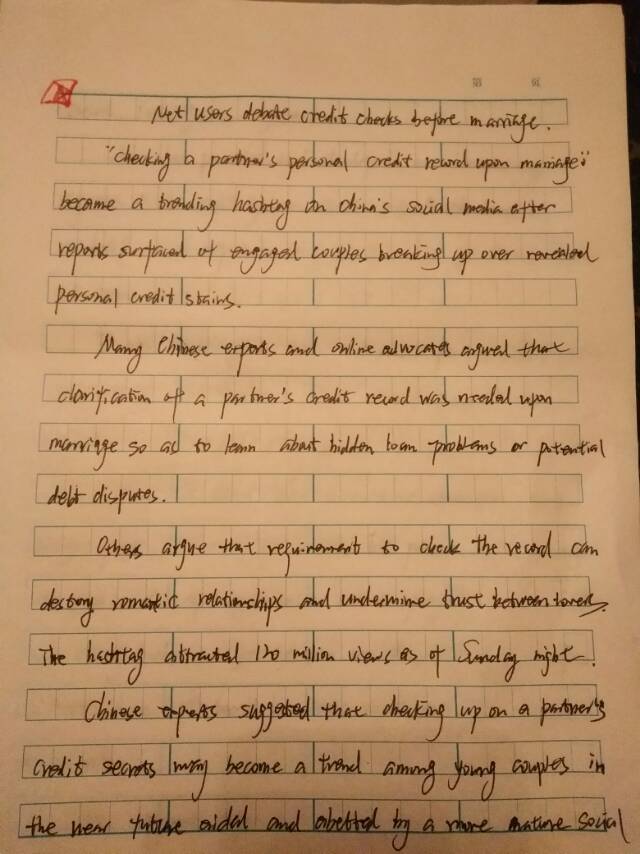 第 页
Net users debate credit checks before marriage.
"checking a partner's personal credit record upon marriage"
became a trending hashtag on China's social media after
reports surfaced of engaged couples breaking up over revealed
personal credit stains.
Many Chinese experts and online advocates argued that
clarification of a partner's credit record was needed upon
marriage so as to learn about hidden loan problems or potential
debt disputes.
Others argue that requirement to check the record can
destroy romantic relationships and undermine trust between lovers.
The hashtag attracted 120 million views as of Sunday night.
Chinese experts suggested that checking up on a partner's
credit secrets may become a trend among young couples in
the near future aided and abetted by a more mature social